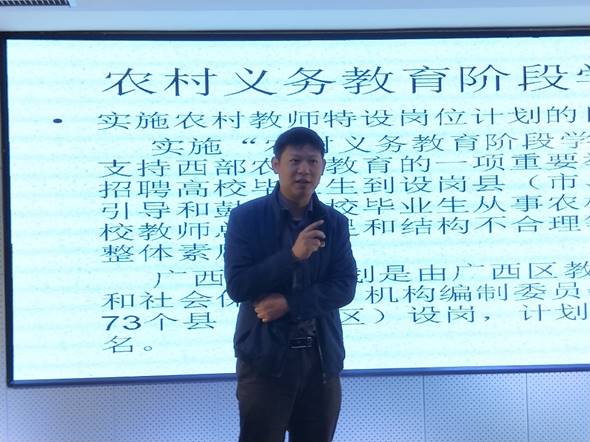 农村义务教育阶段学
• 实施农村教师特设岗位计划的
实施“农村义务教育阶段学
支持西部农 教育的一项重要
招聘高校毕 生到设岗县（市、
引导和鼓 校毕业生从事农村
校教师总 足和结构不合理
整体素质
广西 划是由广西区教
和社会保 机构编制委员
73个县 区）设岗，计划
名。